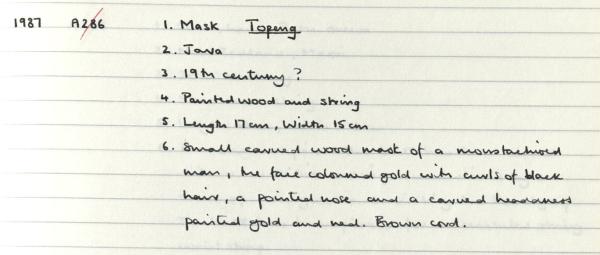 1987 A286 1. Mask Topeng
2. Java
3. 19th century ?
4. Painted wood and string
5. Length 17cm, Width 15cm
6. Small carved wood mask of a moustachioed
man, the face coloured gold with curls of black
hair, a pointed nose and a carved headdress
painted gold and red. Brown cord.